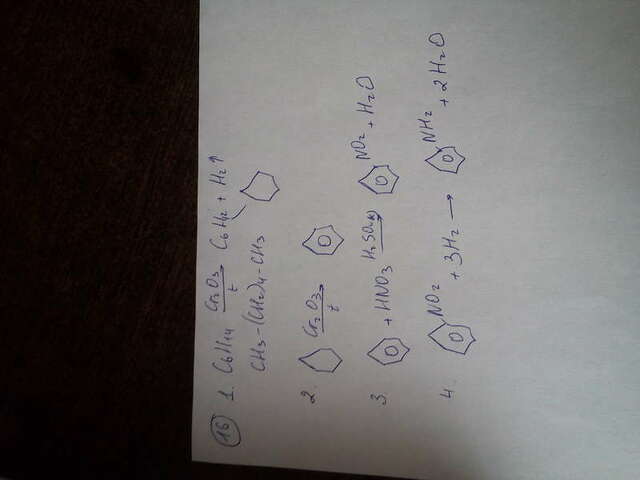 16 1. C6H14 Cr2O3 t C6H12 + H2↑
CH3-(CH2)4-CH3
2. Cr2O3 t
3. + HNO3 H2SO4(k) NO2 + H2O
4. NO2 + 3H2 → NH2 + 2H2O